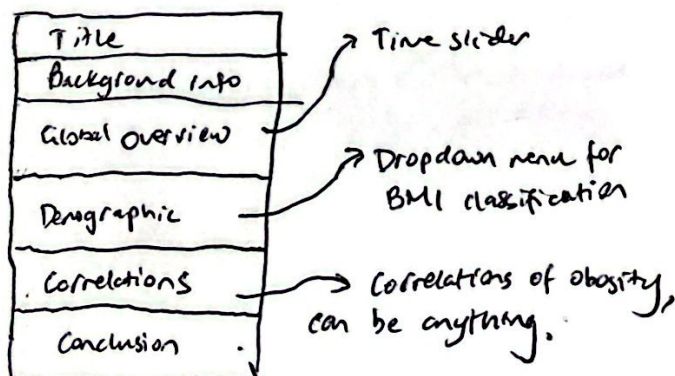 Title
Background info
Global overview
Demographic
Correlations
Conclusion
Time slider
Dropdown menu for
BMI classification
Correlations of obesity,
can be anything.